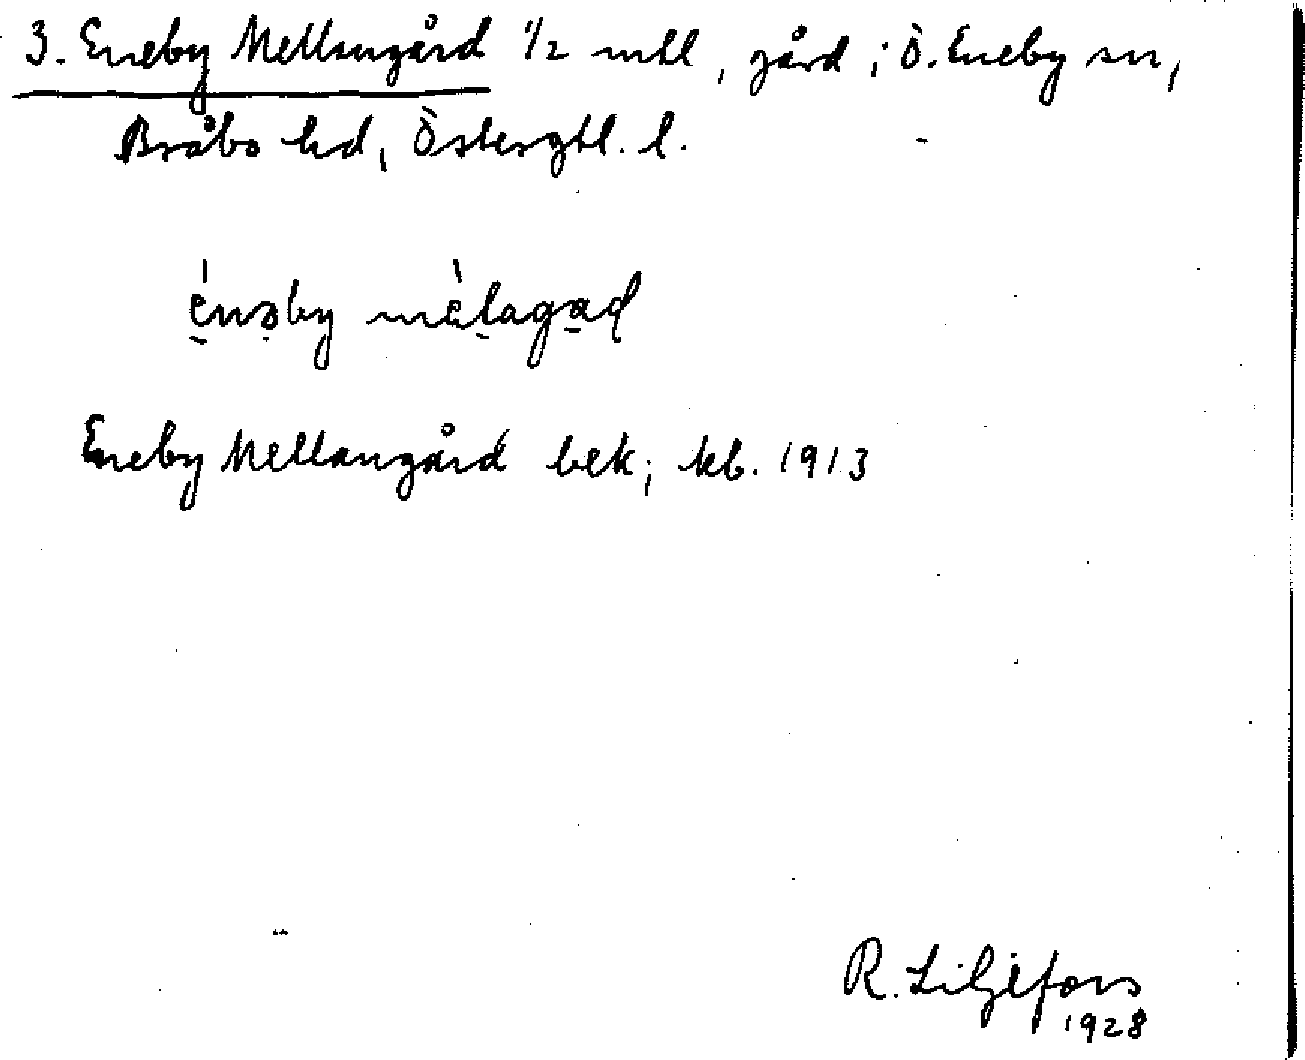 3. Eneby Mellangård 1/2 mtl, gård i Ö. Eneby sn,
Bråbo hd, Östergtl. l.
énəby mèlagad
Eneby Mellangård bek; kb. 1913
R. Liljefors
1928